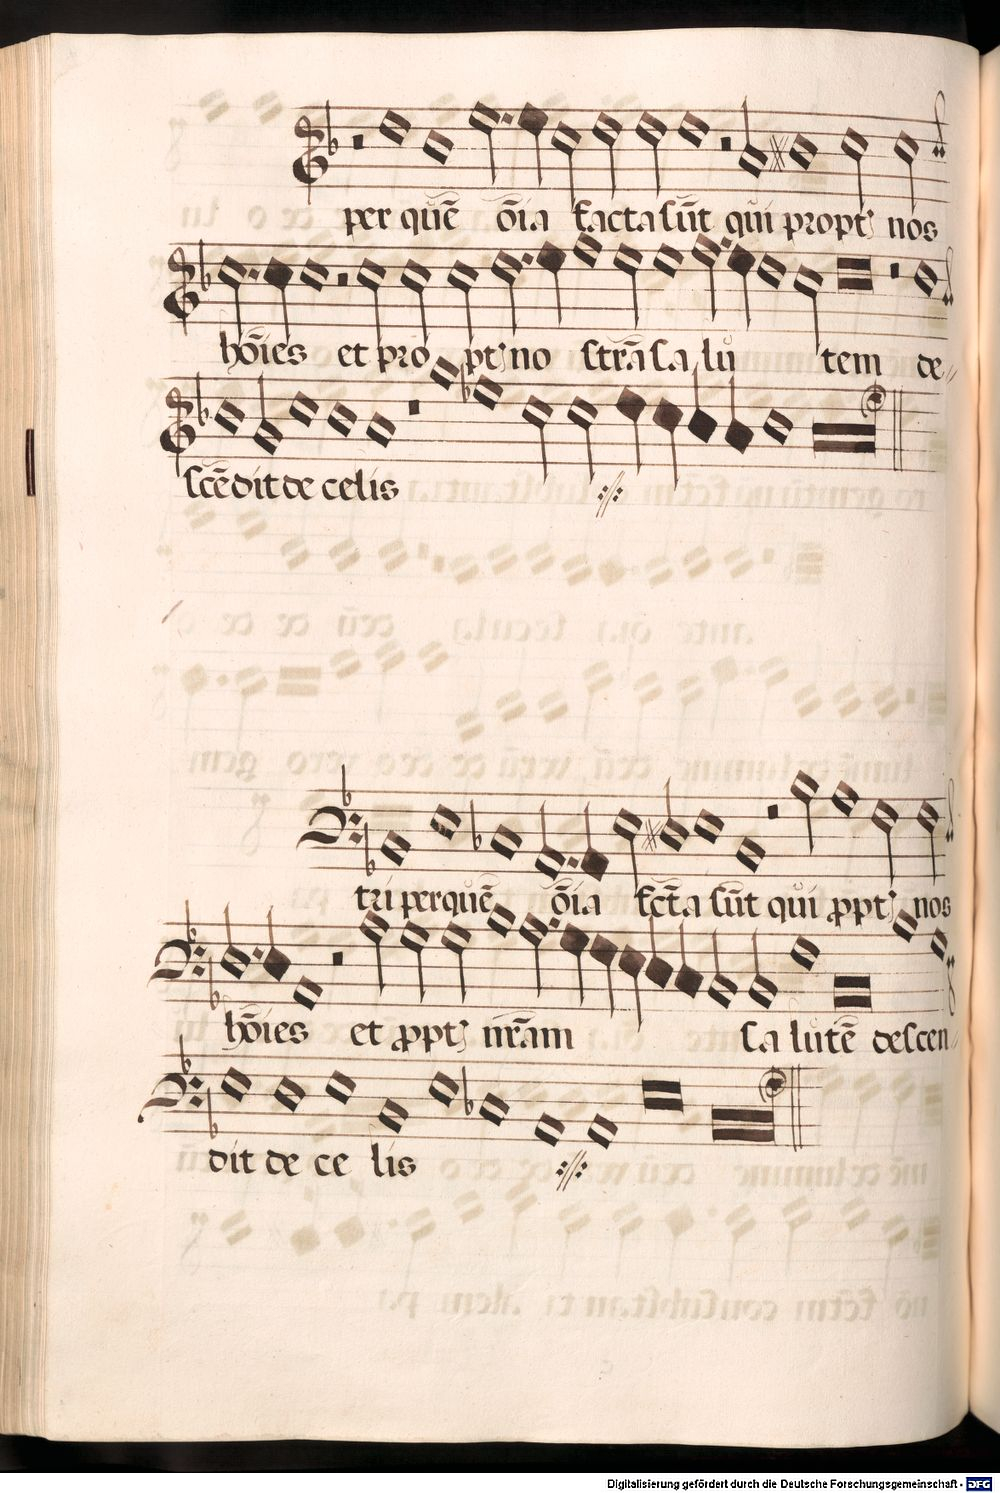 per quē ōia facta sūt qui propt nos
hōies et pro pt no strā sa lu tem de
scēdit de celis
tri per quē ōia fcta sūt qui ppt nos
hōies et ppt nrām sa lutē descen
dit de ce lis
Digitalisierung gefördert durch die Deutsche Forschungsgemeinschaft - DFG